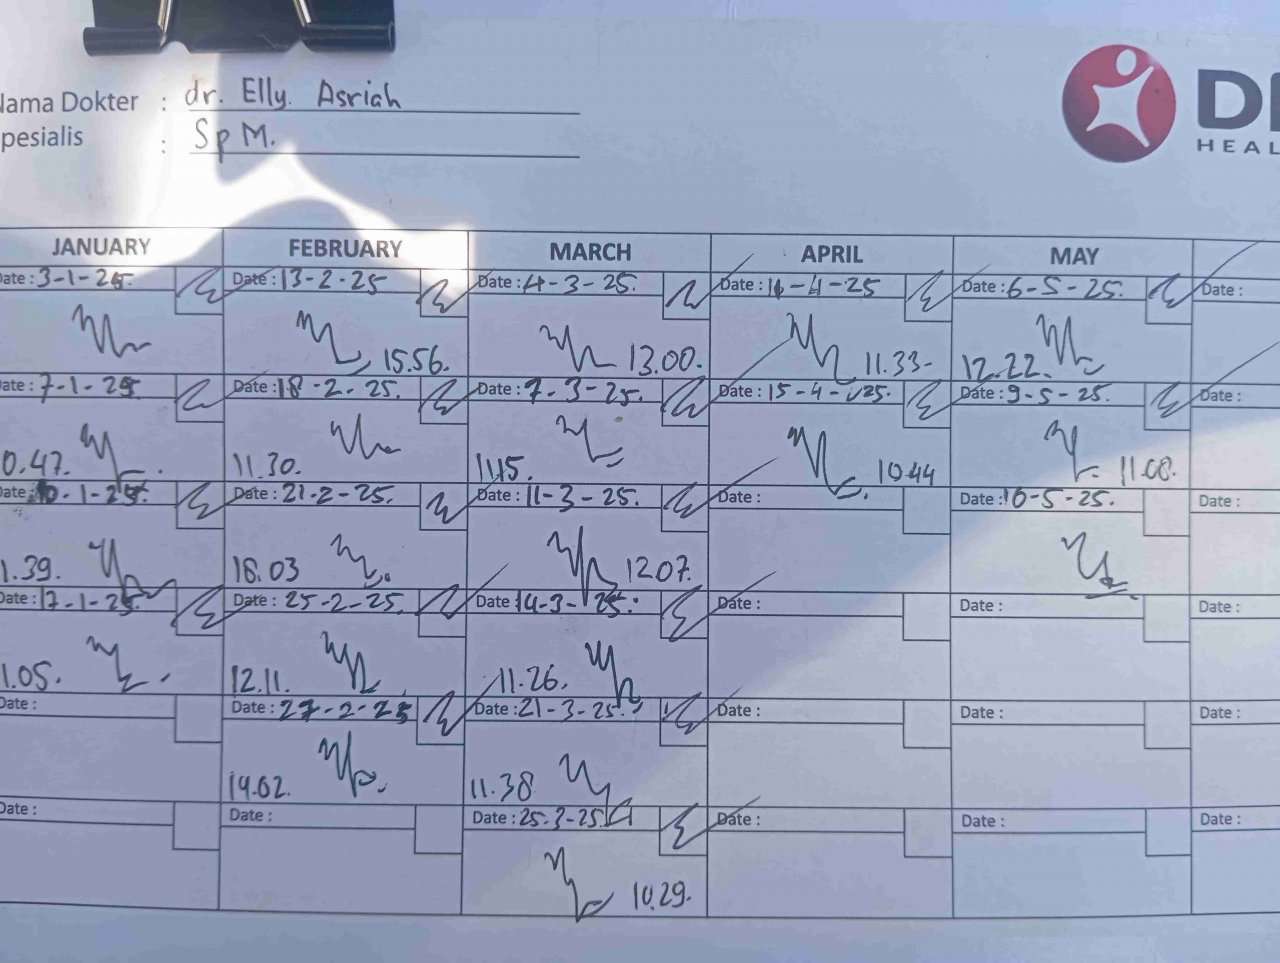 Nama Dokter : dr. Elly. Asriah
Spesialis : SpM.
HEAL
JANUARY FEBRUARY MARCH APRIL MAY
Date : 3-1-25. Date : 13-2-25 Date : 4-3-25. Date : 11-4-25 Date : 6-5-25. Date :
15.56. 13.00. 11.33- 12.22.
Date : 7-1-25 Date : 18-2-25. Date : 7-3-25. Date : 15-4-25. Date : 9-5-25. Date :
0.47. 11.30. 11.15. 10.44 11.00.
Date : 10-1-25. Date : 21-2-25. Date : 11-3-25. Date : Date : 10-5-25. Date :
1.39. 18.03 12.07.
Date : 17-1-25. Date : 25-2-25. Date : 14-3-25. Date : Date : Date :
1.05. 12.11. 11.26.
Date : Date : 27-2-25 Date : 21-3-25. Date : Date : Date :
14.02. 11.38
Date : Date : Date : 25-3-25. Date : Date : Date :
10.29.